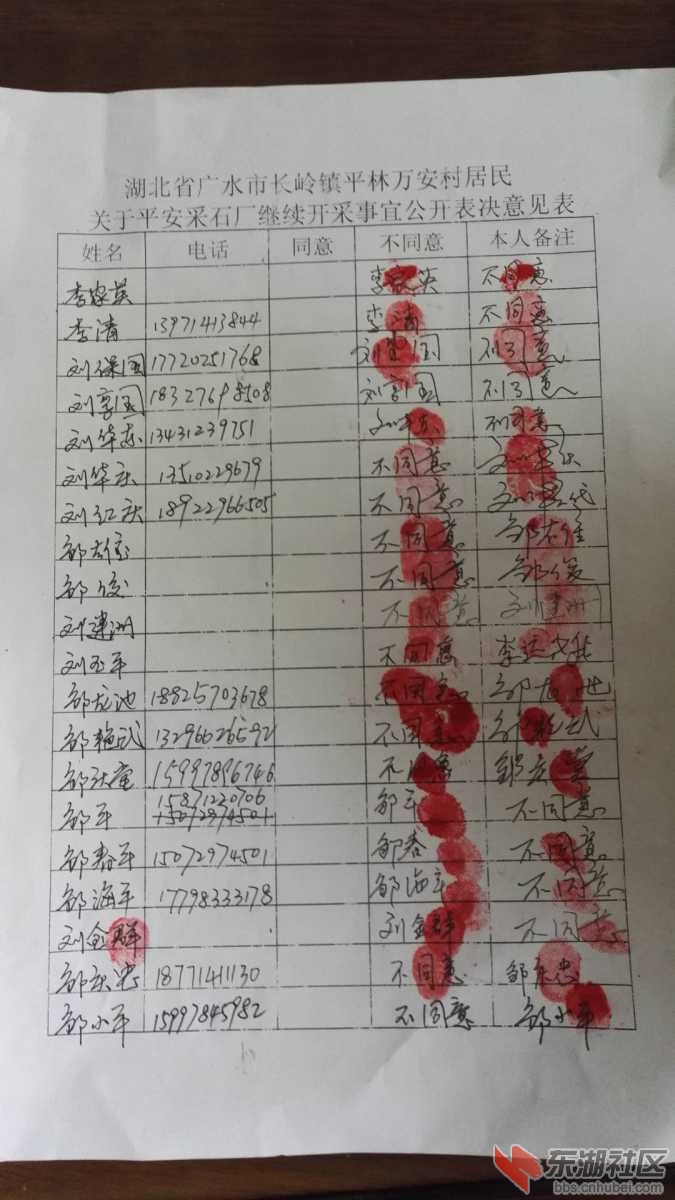 湖北省广水市长岭镇平林万安村居民
关于平安采石厂继续开采事宜公开表决意见表
姓名 电话 同意 不同意 本人备注
李家英 李家英 不同意
李清 13971413844 李清 不同意
刘保国 17720251768 刘保国 不同意
刘享国 18327698508 刘享国 不同意
刘华东 13431239751 刘华东 不同意
刘华庆 13510229679 不同意 刘华庆
刘红庆 18922966505 不同意
邹左雄 不同意 邹左雄
邹俊 不同意 邹俊
刘建洲 不同意 刘建洲
刘玉军 不同意
邹龙池 18825703678 不同意 邹龙池
邹艳武 13296626592 不同意 邹艳武
邹 15997896746 不同意
邹军 15871220706 15072974501 邹军 不同意
邹春军 15072974501 邹春 不同意
邹海军 17798333178 邹海军 不同意
刘金群 刘金群 不同意
邹东忠 18771411130 不同意 邹东忠
邹小军 15997845982 不同意 邹小军
东湖社区
bbs.cnhubei.com